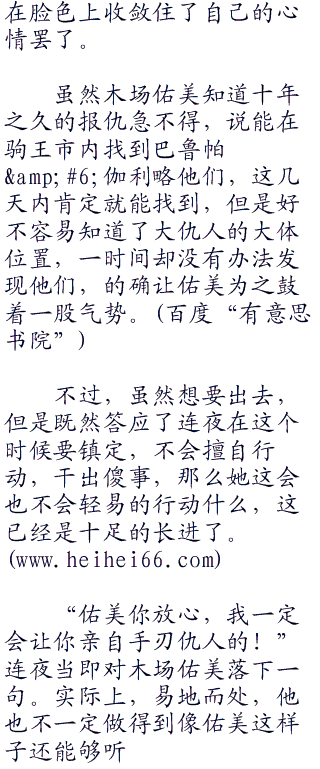 在脸色上收敛住了自己的心
情罢了。
虽然木场佑美知道十年
之久的报仇急不得，说能在
驹王市内找到巴鲁帕
&amp;#6;伽利略他们，这几
天内肯定就能找到，但是好
不容易知道了大仇人的大体
位置，一时间却没有办法发
现他们，的确让佑美为之鼓
着一股气势。(百度“有意思
书院”)
不过，虽然想要出去，
但是既然答应了连夜在这个
时候要镇定，不会擅自行
动，干出傻事，那么她这会
也不会轻易的行动什么，这
已经是十足的长进了。
(www.heihei66.com)
“佑美你放心，我一定
会让你亲自手刃仇人的！”
连夜当即对木场佑美落下一
句。实际上，易地而处，他
也不一定做得到像佑美这样
子还能够听